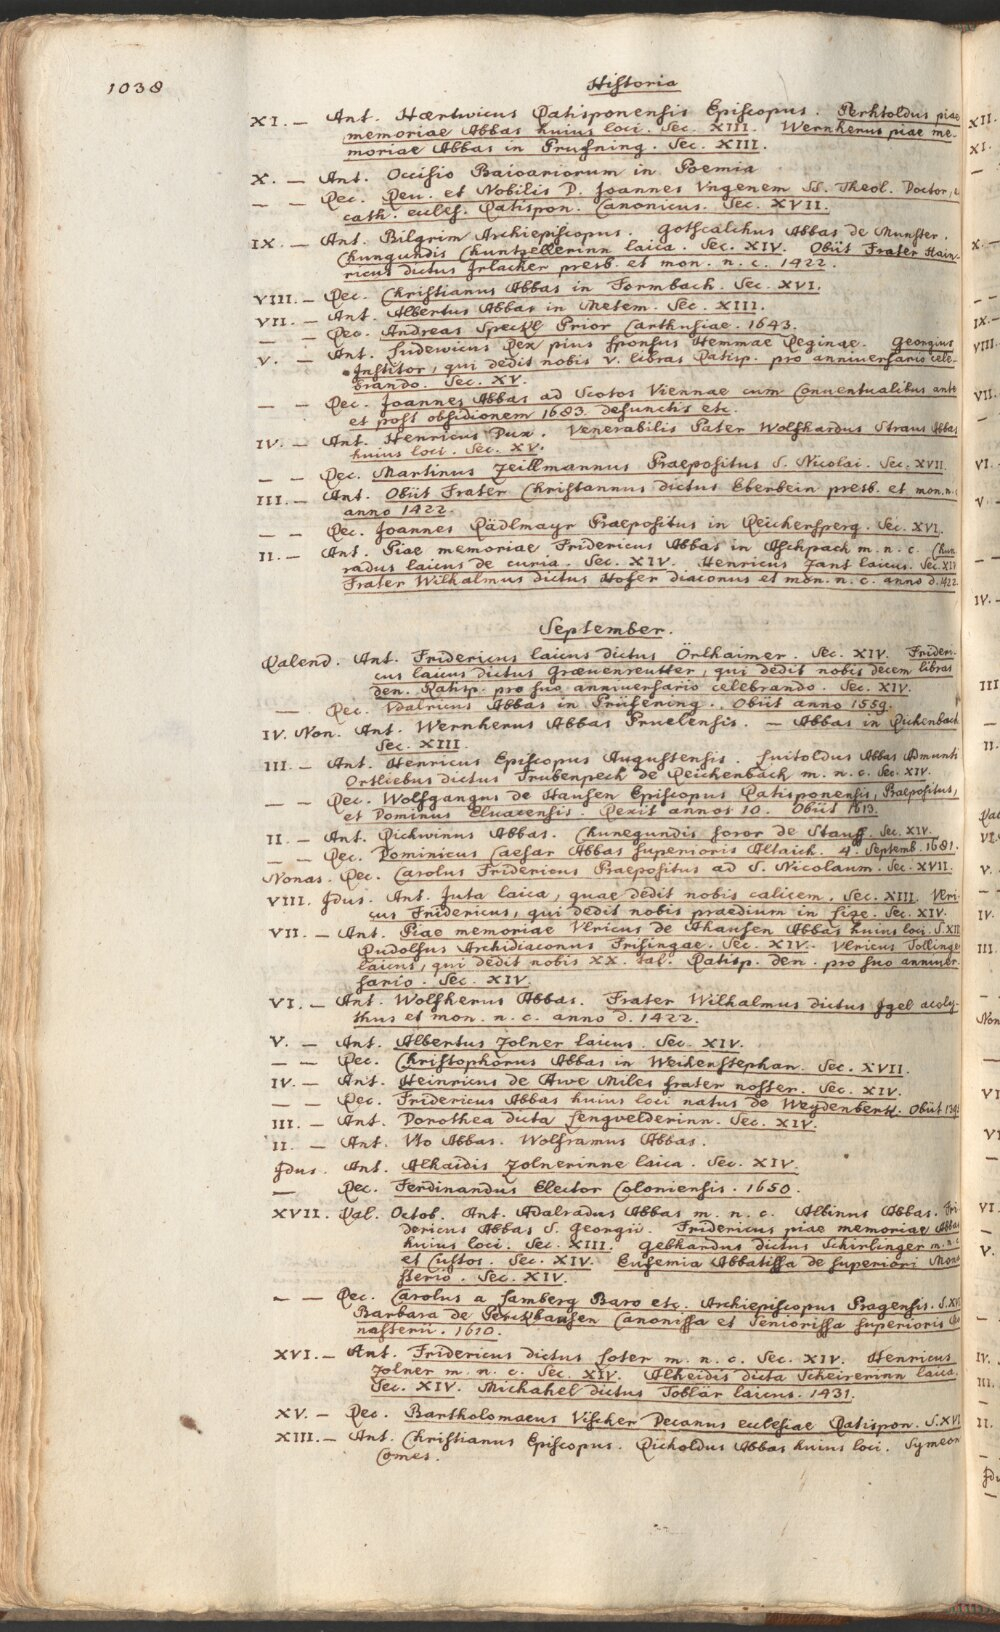 1038
Historia
XI. — Ant. Haertwicus Ratisponensis Episcopus. Perhtoldus piae
memoriae Abbas huius loci. Sec. XIII. Wernherus piae me-
moriae Abbas in Prufning. Sec. XIII.
X. — Ant. Occisio Baioariorum in Poemia
— — Rec. Reu. et Nobilis D. Joannes Vngenem SS. Theol. Doctor,
cath. eccles. Ratispon. Canonicus. Sec. XVII.
IX. — Ant. Bilgrim Archiepiscopus. Gotscalchus Abbas de Munster.
Chungundis Chuntzellerinn laica. Sec. XIV. Obiit Frater Hain-
ricus dictus Jrlacher presb. et mon. n. c. 1422.
VIII. — Rec. Christianus Abbas in Formbach. Sec. XVI.
VII. — Ant. Albertus Abbas in Metem. Sec. XIII.
— — Rec. Andreas Speckl Prior Carthusiae. 1643.
V. — Ant. Ludewicus Rex pius sponsus Hemmae Reginae. Georgius
Institor, qui dedit nobis V. libras Ratisp. pro anniuersario cele-
brando. Sec. XV.
— — Rec. Joannes Abbas ad Scotos Viennae cum Conuentualibus ante
et post obsidionem 1683. defunctis etc.
IV. — Ant. Henricus Dux. Venerabilis Pater Wolfhardus Straus Abbas
huius loci. Sec. XV.
— — Rec. Martinus Zeillmannus Praepositus S. Nicolai. Sec. XVII.
III. — Ant. Obiit Frater Christannus dictus Eberbein presb. et mon. n.
anno 1422.
— — Rec. Joannes Rädlmayr Praepositus in Reichersperg. Sec. XVI.
II. — Ant. Piae memoriae Fridericus Abbas in Aschpach m. n. c. Chun
radus laicus de curia. Sec. XIV. Henricus Zant laicus. Sec. XIV
Frater Wilhalmus dictus Hofer diaconus et mon. n. c. anno d. 1422
September.
Kalend. Ant. Fridericus laicus dictus Örlhaimer. Sec. XIV. Frideri
cus laicus dictus Graeuenreutter, qui dedit nobis decem libras
den. Ratisp. pro suo anniuersario celebrando. Sec. XIV.
— Rec. Vdalricus Abbas in Prüfening. Obiit anno 1559.
IV. Non. Ant. Wernherus Abbas Pruelensis. — Abbas in Richenbach
Sec. XIII.
III. — Ant. Henricus Episcopus Augustensis. Luitoldus Abbas Admunt
Ortliebus dictus Trubenpeck de Reichenbach m. n. c. Sec. XIV.
— — Rec. Wolfgangus de Hausen Episcopus Ratisponensis, Praepositus,
et Dominus Eluacensis. Rexit annos 10. Obiit 1613.
II. — Ant. Richwinus Abbas. Chunegundis soror de Stauff. Sec. XIV.
— — Rec. Dominicus Caesar Abbas superioris Altaich. 4. Septemb. 1681.
Nonas. Rec. Carolus Fridericus Praepositus ad S. Nicolaum. Sec. XVII.
VIII. Jdus. Ant. Juta laica, quae dedit nobis calicem. Sec. XIII. Vlri
cus Fridericus, qui dedit nobis praedium in Lige. Sec. XIV.
VII. — Ant. Piae memoriae Vlricus de Ahausen Abbas huius loci. S. XII
Rudolfus Archidiaconus Frisingae. Sec. XIV. Vlricus Tollinge
laicus, qui dedit nobis XX. tal. Ratisp. den. pro suo anniuer-
sario. Sec. XIV.
VI. — Ant. Wolfkerus Abbas. Frater Wilhalmus dictus Jgel acoly-
thus et mon. n. c. anno d. 1422.
V. — Ant. Albertus Zolner laicus. Sec. XIV.
— — Rec. Christophorus Abbas in Weihenstephan. Sec. XVII.
IV. — Ant. Heinricus de Awe Miles frater noster. Sec. XIV.
— — Rec. Fridericus Abbas huius loci natus de Weydenberk. Obiit
III. — Ant. Dorothea dicta Lengvelderinn. Sec. XIV.
II. — Ant. Vto Abbas. Wolframus Abbas.
Jdus. Ant. Alhaidis Zolnerinne laica. Sec. XIV.
— Rec. Ferdinandus Elector Coloniensis. 1650.
XVII. Kal. Octob. Ant. Adalradus Abbas m. n. c. Albinus Abbas. Fri
dericus Abbas S. Georgii Fridericus piae memoriae Abbas
huius loci. Sec. XIII. Gebhardus dictus Schirlinger m. n. c
et Custos. Sec. XIV. Eufemia Abbatissa de superiori Mona
sterio. Sec. XIV.
— — Rec. Carolus a Lamberg Baro etc. Archiepiscopus Pragensis. S. XVI
Barbara de Perckhausen Canonissa et Seniorissa superioris
nasterii. 1610.
XVI. — Ant. Fridericus dictus Loter m. n. c. Sec. XIV. Henricus
Zolner m. n. c. Sec. XIV. Alheidis dicta Scheirerinn laica.
Sec. XIV. Michahel dictus Toblär laicus. 1431.
XV. — Rec. Bartholomaeus Vischer Decanus ecclesiae Ratispon. S. XVI
XIII. — Ant. Christianus Episcopus. Richoldus Abbas huius loci. Symeon
Comes.